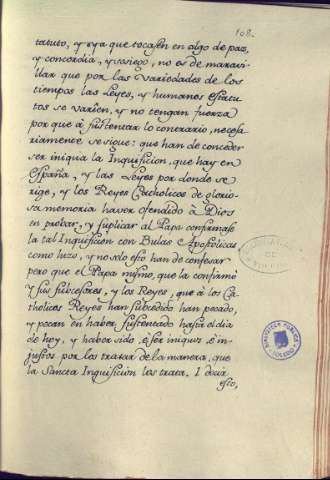 108.
tatuto, y ya que tocasen en algo de paz,
y concordia, y sosiego, no es de maravi-
llar que por las variedades de los
tiempos las Leyes, y humanos estatu
tos se varien, y no tengan fuerza
por que à sustentar lo contrario, necesa
riamente se sigue: que han de conceder
ser iniqua la Inquisicion, que hay en
España, y las Leyes por donde se
rige, y los Reyes Catholicos de glorio-
sa memoria haver ofendido à Dios
en probar, y suplicar al Papa confirmase
la tal Inquisicion con Bulas Apostolicas
como hizo, y no solo esto han de confesar
pero que el Papa mismo, que la confirmó
y sus subcesores, y los Reyes, que à los Ca
tholicos Reyes han subcedido han pecado,
y pecan en haber sustentado hasta el dia
de hoy, y haber sido, è ser iniquos è in-
justos por los tratar de la manera, que
la Sancta Inquisicion los trata. I decir
esto,
BIBLIOTECA PUBLICA
TOLEDO